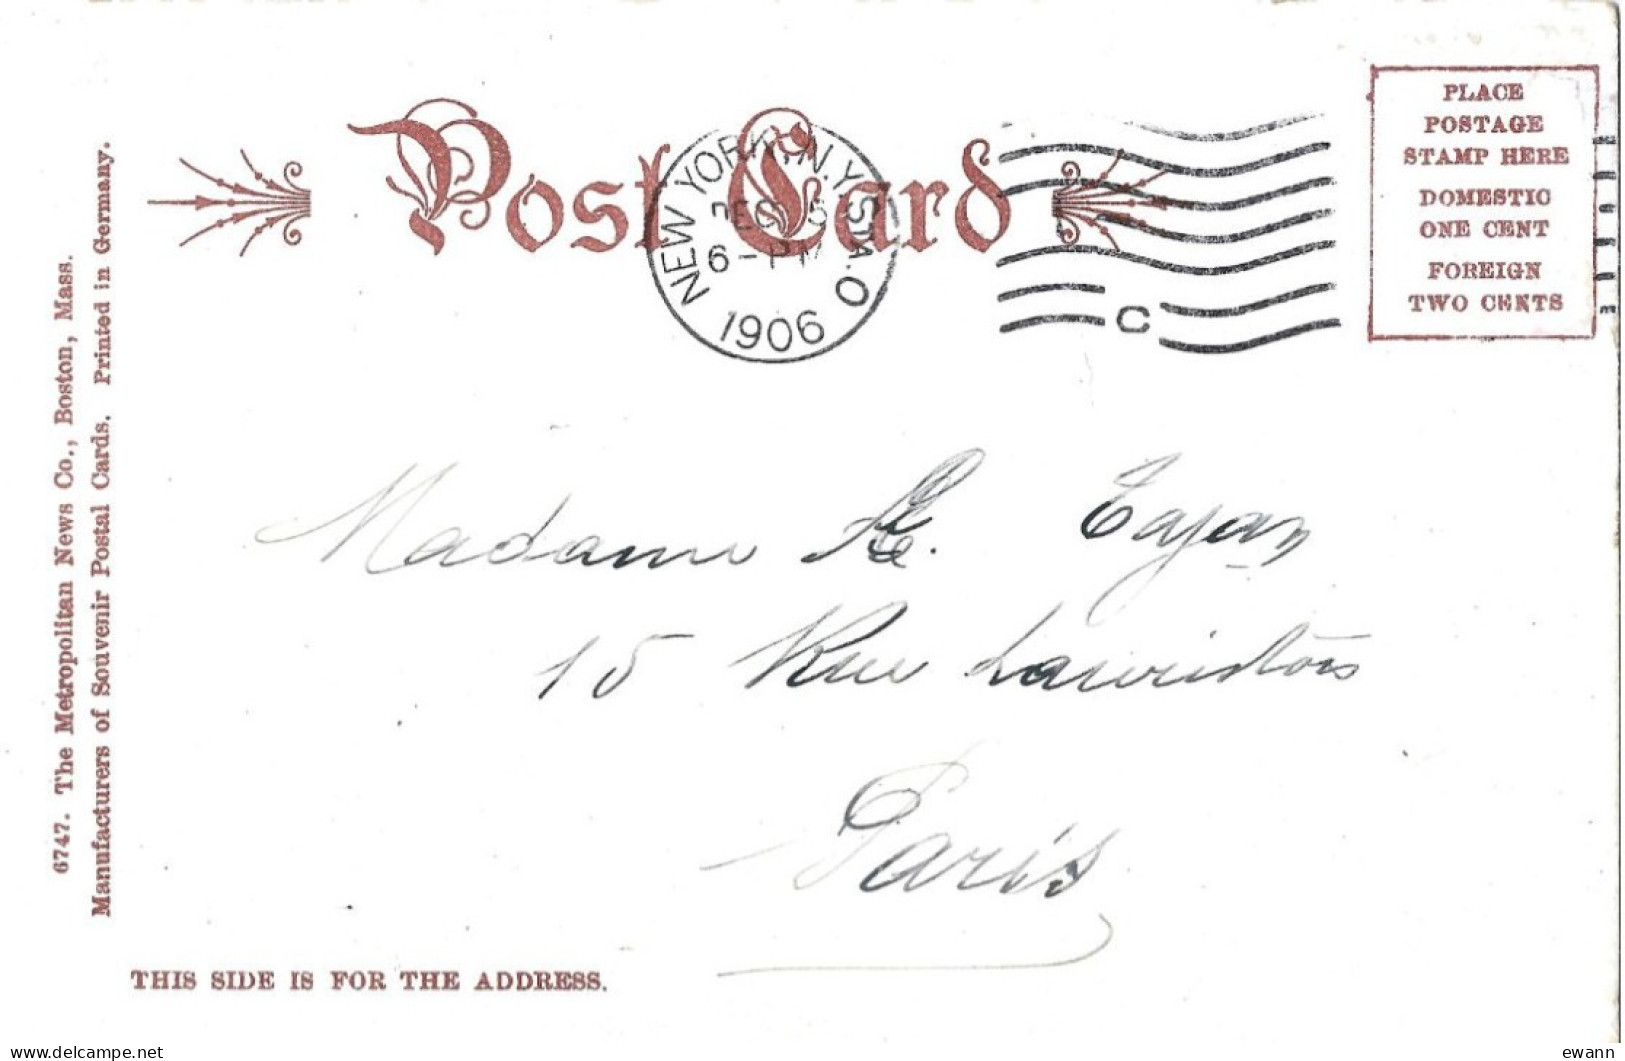 Post Card
PLACE
POSTAGE
STAMP HERE
DOMESTIC
ONE CENT
FOREIGN
TWO CENTS
NEW YORK, N.Y. STA. O
DEC 5
6 - PM
1906
C
6747. The Metropolitan News Co., Boston, Mass.
Manufacturers of Souvenir Postal Cards. Printed in Germany.
Madame Cajan
15 Rue Lauriston
Paris
THIS SIDE IS FOR THE ADDRESS.
Delcampe.net
ewann